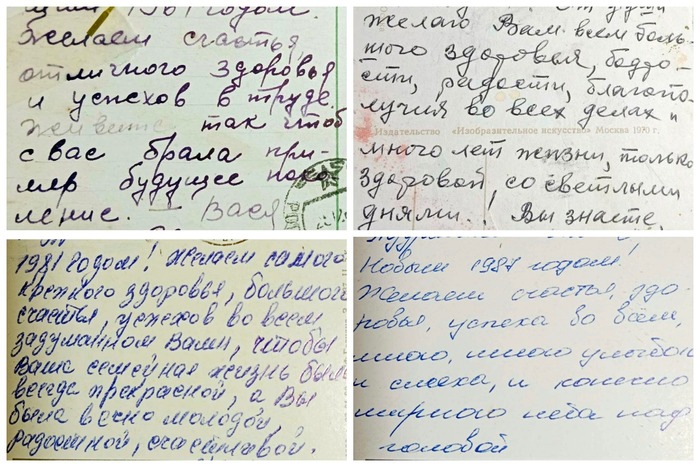 1961 годом.
Желаем счастья,
отличного здоровья
и успехов в труде.
Живите так чтоб
с вас брала при-
мер будущее поко-
ление. Вася
желаю Вам всем боль-
шого здоровья, бодро-
сти, радости, благопо-
лучия во всех делах и
Издательство «Изобразительное искусство» Москва 1970 г.
много лет жизни, только
здоровой, со светлыми
днями.! Вы знаете,
1981 годом! Желаем самого
крепкого здоровья, большого
счастья, успехов во всем
задуманном Вами, чтобы
Ваша семейная жизнь была
всегда прекрасной, а Вы
была вечно молодой,
радостной, счастливой.
Новым 1987 годом!
Желаем счастья, здо-
ровья, успеха во всём,
много, много улыбок
и смеха, и конечно
мирного неба над
головой